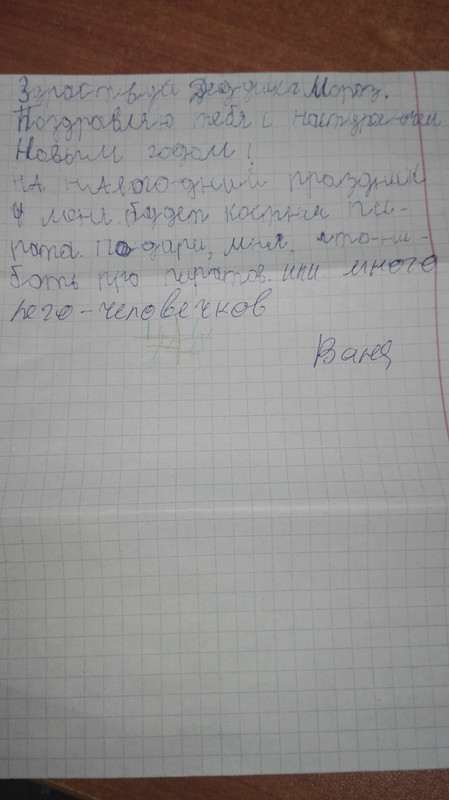 Здраствуй Дедушка Мороз.
Поздравляю тебя с наступающем
Новым годом!
на навогодний праздник
у меня будет костюм пи-
рата. Подари, мня, что-ни-
боть про пиратов или много
лего-человечков
Ваня